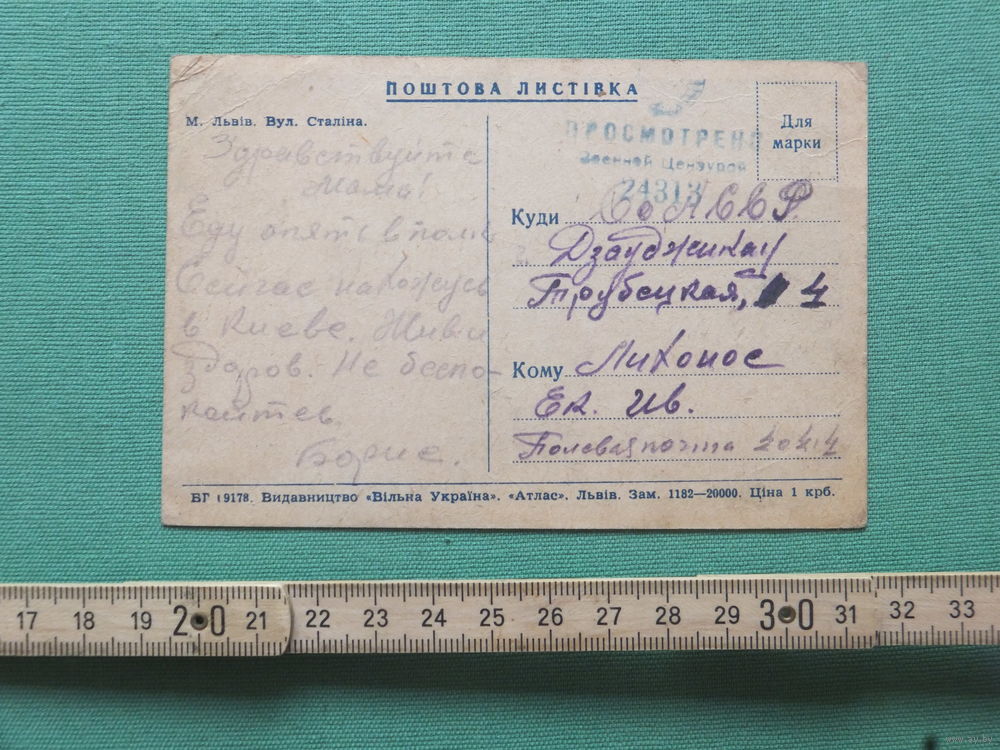 ПОШТОВА ЛИСТІВКА
М. Львів. Вул. Сталіна.
Здравствуйте
Мама!
Еду опять в полк
Сейчас нахожусь
в Киеве. Живи
здоров. Не беспо-
койтев
Борис.
ПРОСМОТРЕНО
Военной Цензурой
24313
Для
марки
Куди Со АССР
Дзауджикау
Трубецкая, 4
Кому Лихонос
Ек. Ив.
Полевая почта
БГ 19178. Видавництво «Вільна Україна». «Атлас». Львів. Зам. 1182—20000. Ціна 1 крб.
17 18 19 20 21 22 23 24 25 26 27 28 29 30 31 32 33
www.ay.by